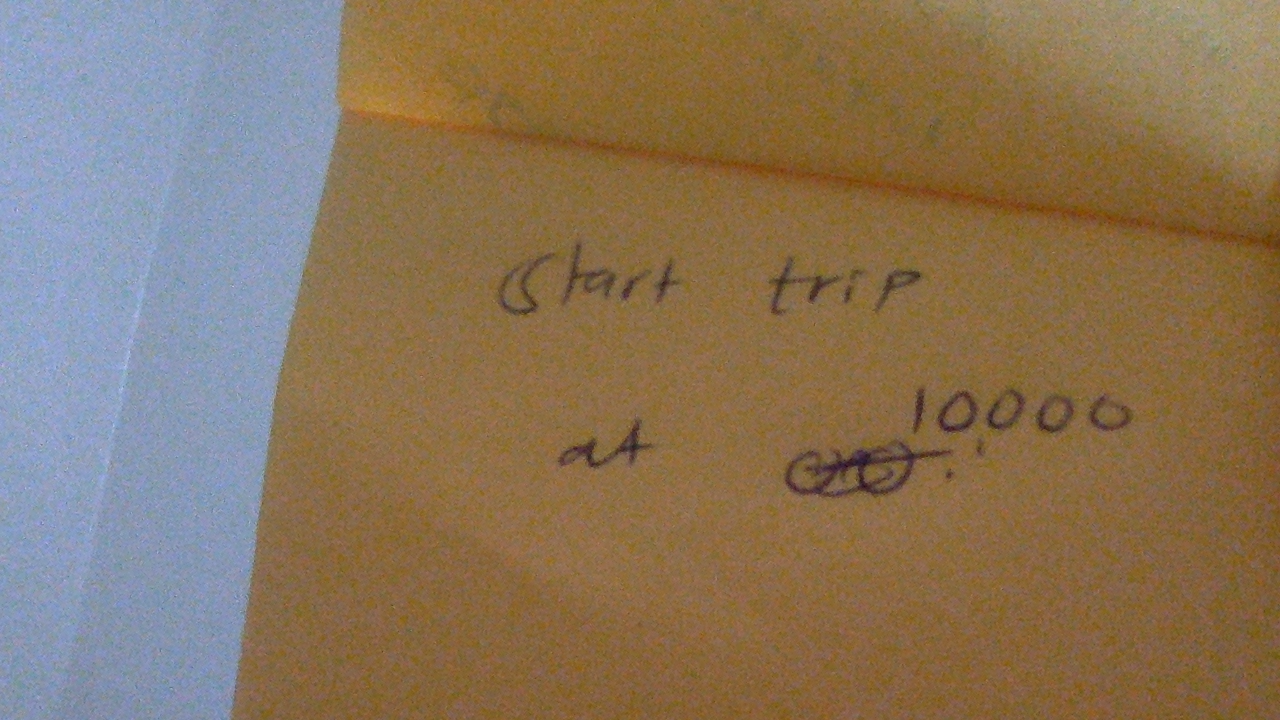 Start trip
at 10000